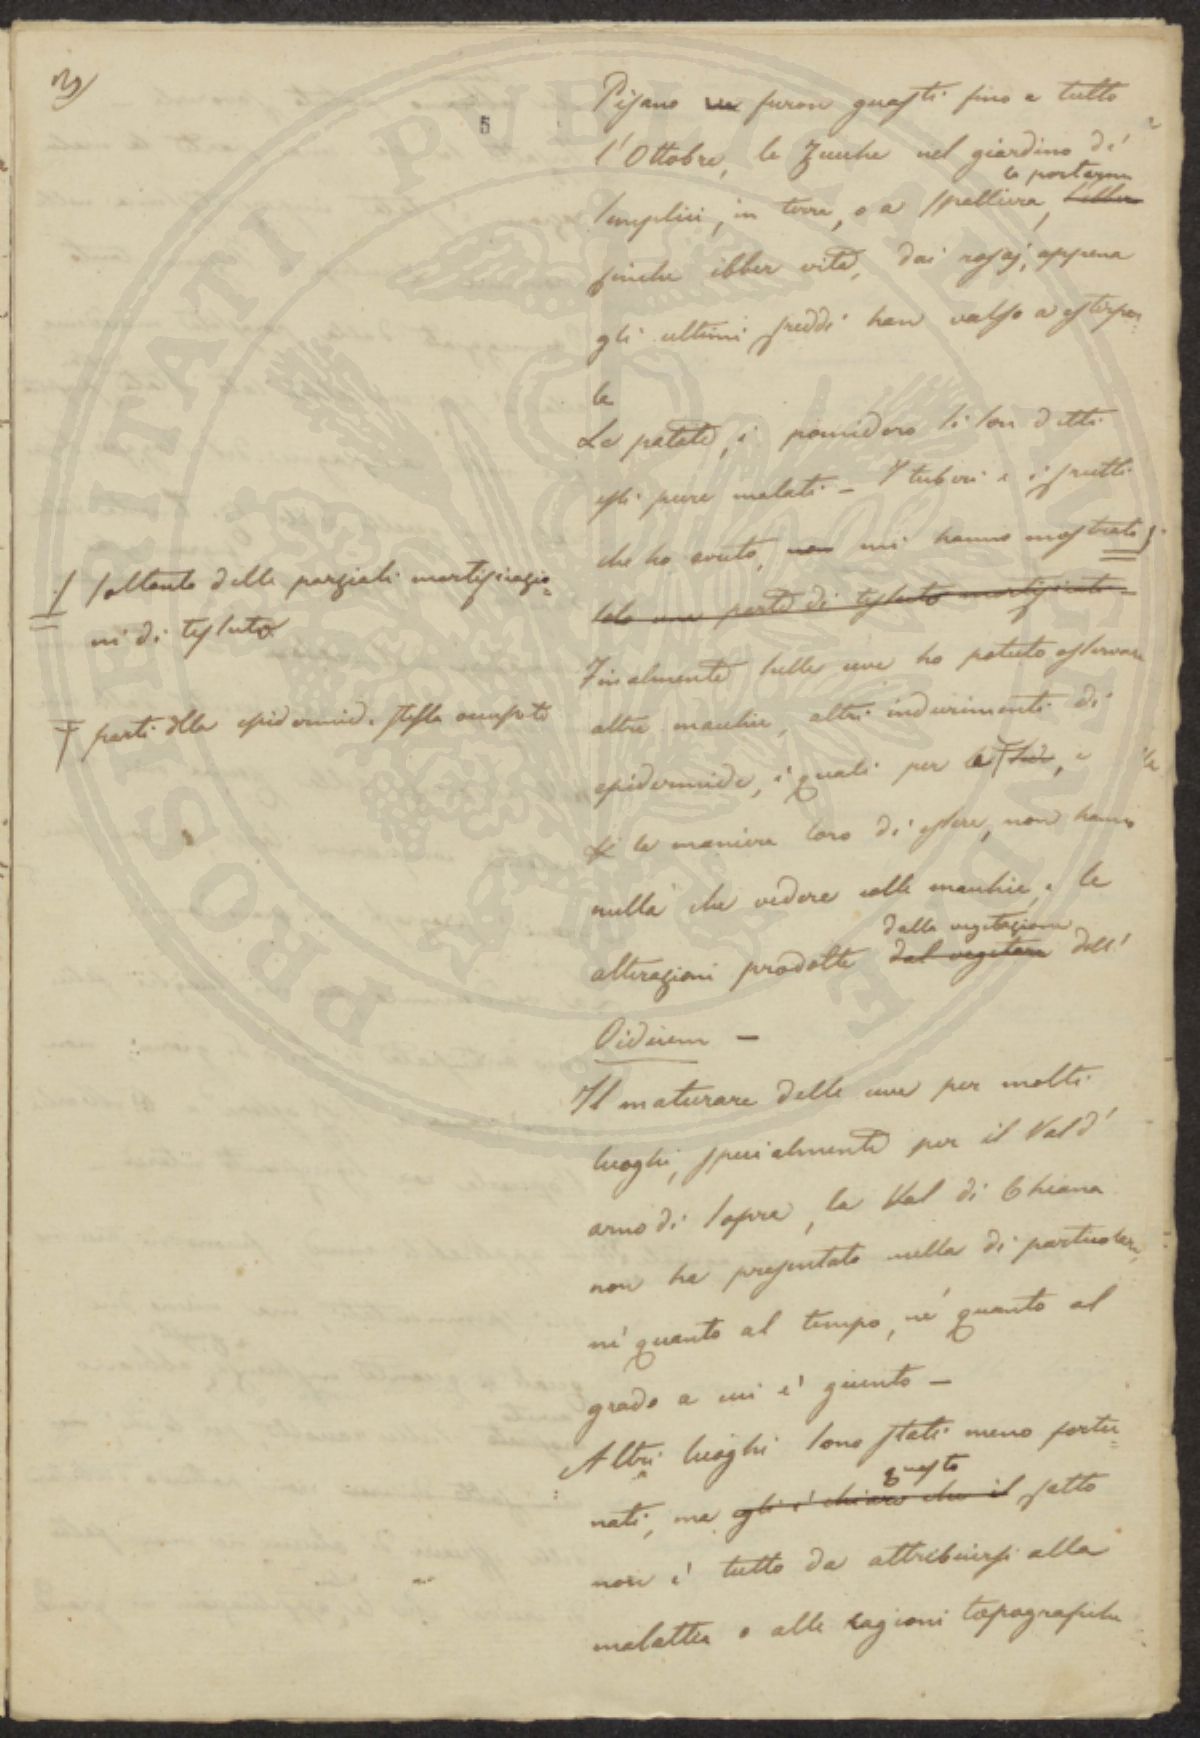 3)
5
Pisano furon guasti fino a tutto
l'Ottobre, le Zucche nel giardino de'
la portaron
semplici, in terra, o a spalliera, l'ebber
finche ebber vita, dai rosaj, appena
gli ultimi freddi han valso a estirpar=
la
Le patate, i pomidoro si son detti
essi pure malati – I tuberi e i frutti
che ho avuto, non mi hanno mostrato
solo una parte di tessuto mortificato –
Finalmente sulle uve ho potuto osservare
altre macchie, altri indurimenti di
epidermide, i quali per le sedi, e
la maniera loro di essere, non hanno
nulla che vedere colle macchie, e le
dalla vegetazione
alterazioni prodotte dal vegetare dell'
Oidium –
Il maturare delle uve per molti
luoghi, specialmente per il Vald'
arno di sopra, la Val di Chiana
non ha presentato nulla di particolare,
nè quanto al tempo, nè quanto al
grado a cui è giunto –
Altri luoghi sono stati meno fortu=
questo
nati, ma gli è chiaro che il fatto
non è tutto da attribuirsi alla
malattia o alle ragioni topografiche
soltanto delle parziali mortificazio=
ni di tessuto
parti della epidermide stessa occupate
PROSPERITATI PVBLICAE